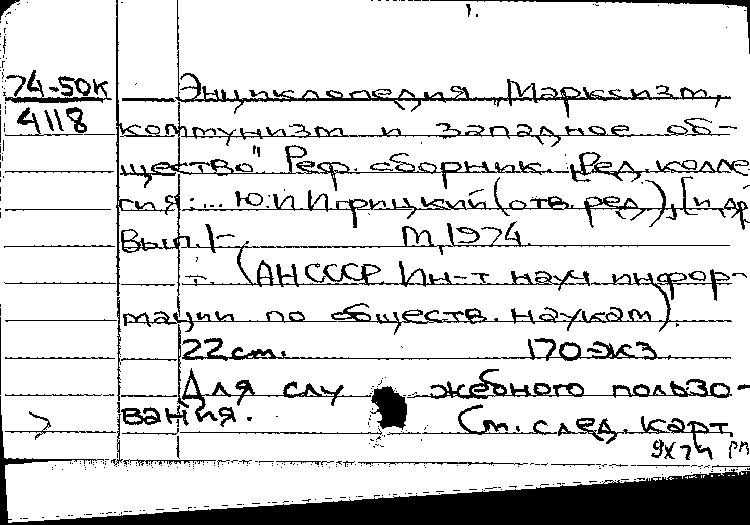 1.
74-50К
4118
Энциклопедия „Марксизм,
коммунизм и западное об-
щество" Реф. сборник. [Ред. колле-
гия: ... Ю.И. Игрицкий (отв. ред.), [и др.
Вып. 1-, М, 1974.
- (АН СССР. Ин-т науч. инфор-
мации по обществ. наукам).
22 см. 170 экз.
Для служебного пользо-
вания. См. след. карт.
9X74